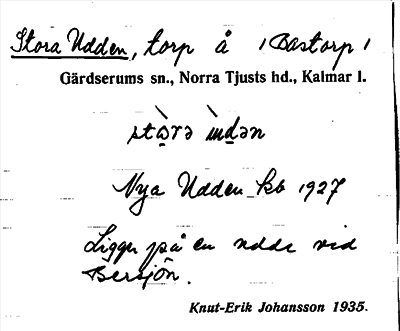 Stora Udden, torp å Bastorp
Gärdserums sn., Norra Tjusts hd., Kalmar l.
Nya Udden kb 1927
Ligger på en udde vid
Bersjön.
Knut-Erik Johansson 1935.